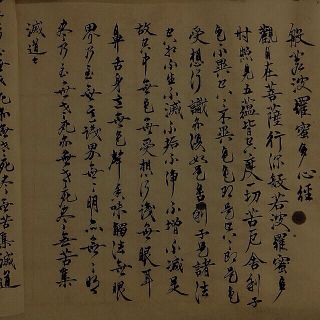 般若波羅蜜多心經
觀自在菩薩行深般若波羅蜜多
時照見五蘊皆空度一切苦厄舍利子
色不異空空不異色色即是空空即是色
受想行識亦復如是舍利子是諸法
空相不生不滅不垢不淨不增不減是
故空中無色無受想行識無眼耳
鼻舌身意無色聲香味觸法無眼
界乃至無意識界無無明亦無無明
盡乃至無老死亦無老死盡無苦集
滅道
老死亦無老死盡無苦集滅道